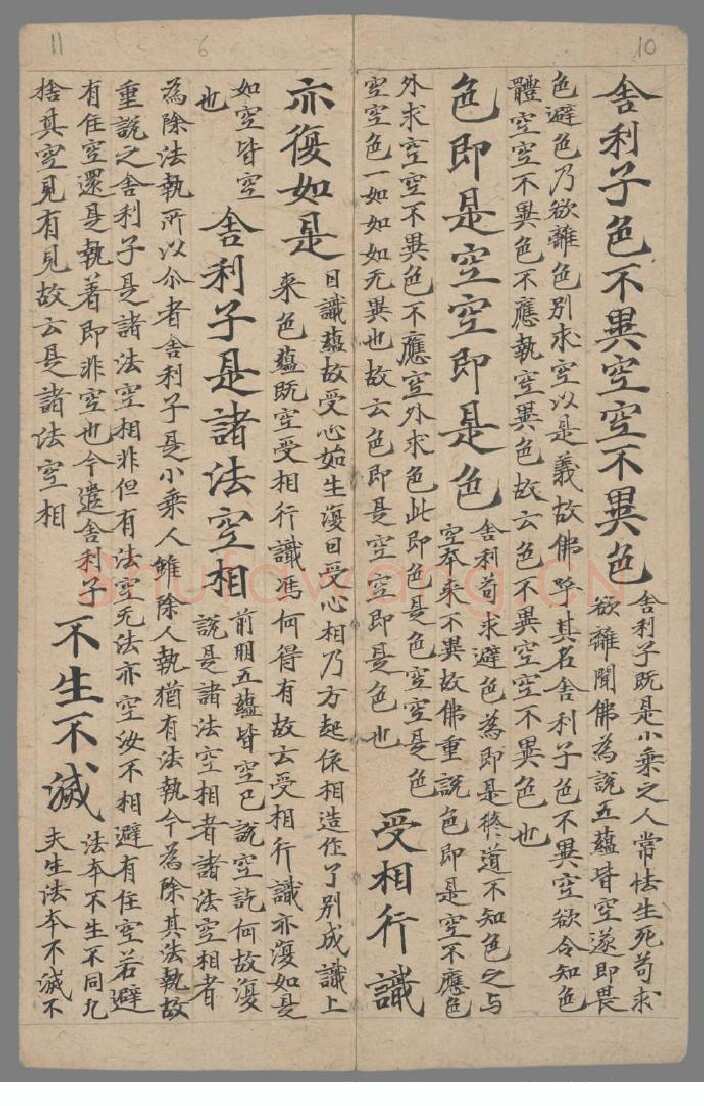 10
舍利子色不異空空不異色 舍利子既是小乘之人常怯生死苟求
欲離聞佛為說五蘊皆空遂即畏
色避色乃欲離色別求空以是義故佛呼其名舍利子色不異空欲令知色
體空空不異色不應執空異色故云色不異空空不異色也
色即是空空即是色 舍利苟求避色為即是終道不知色之与
空本來不異故佛重說色即是空不應色
外求空空不異色不應空外求色此即色是色空空是色
空空色一如如如无異也故云色即是空空即是色也 受相行識
11
6
亦復如是 曰識蘊故受心始生復曰受心相乃方起依相造作了別成識上
來色蘊既空受相行識馮何得有故云受相行識亦復如是
如空皆空
也
舍利子是諸法空相 前明五蘊皆空已說空訖何故復
說是諸法空相者諸法空相者
為除法執所以尒者舍利子是小乘人雖除人執猶有法執今為除其法執故
重說之舍利子是諸法空相非但有法空无法亦空汝不相避有住空若避
有住空還是執著即非空也今遣舍利子
捨其空見有見故云是諸法空相
不生不滅 法本不生不同凡
夫生法本不滅不
shufawang.CN